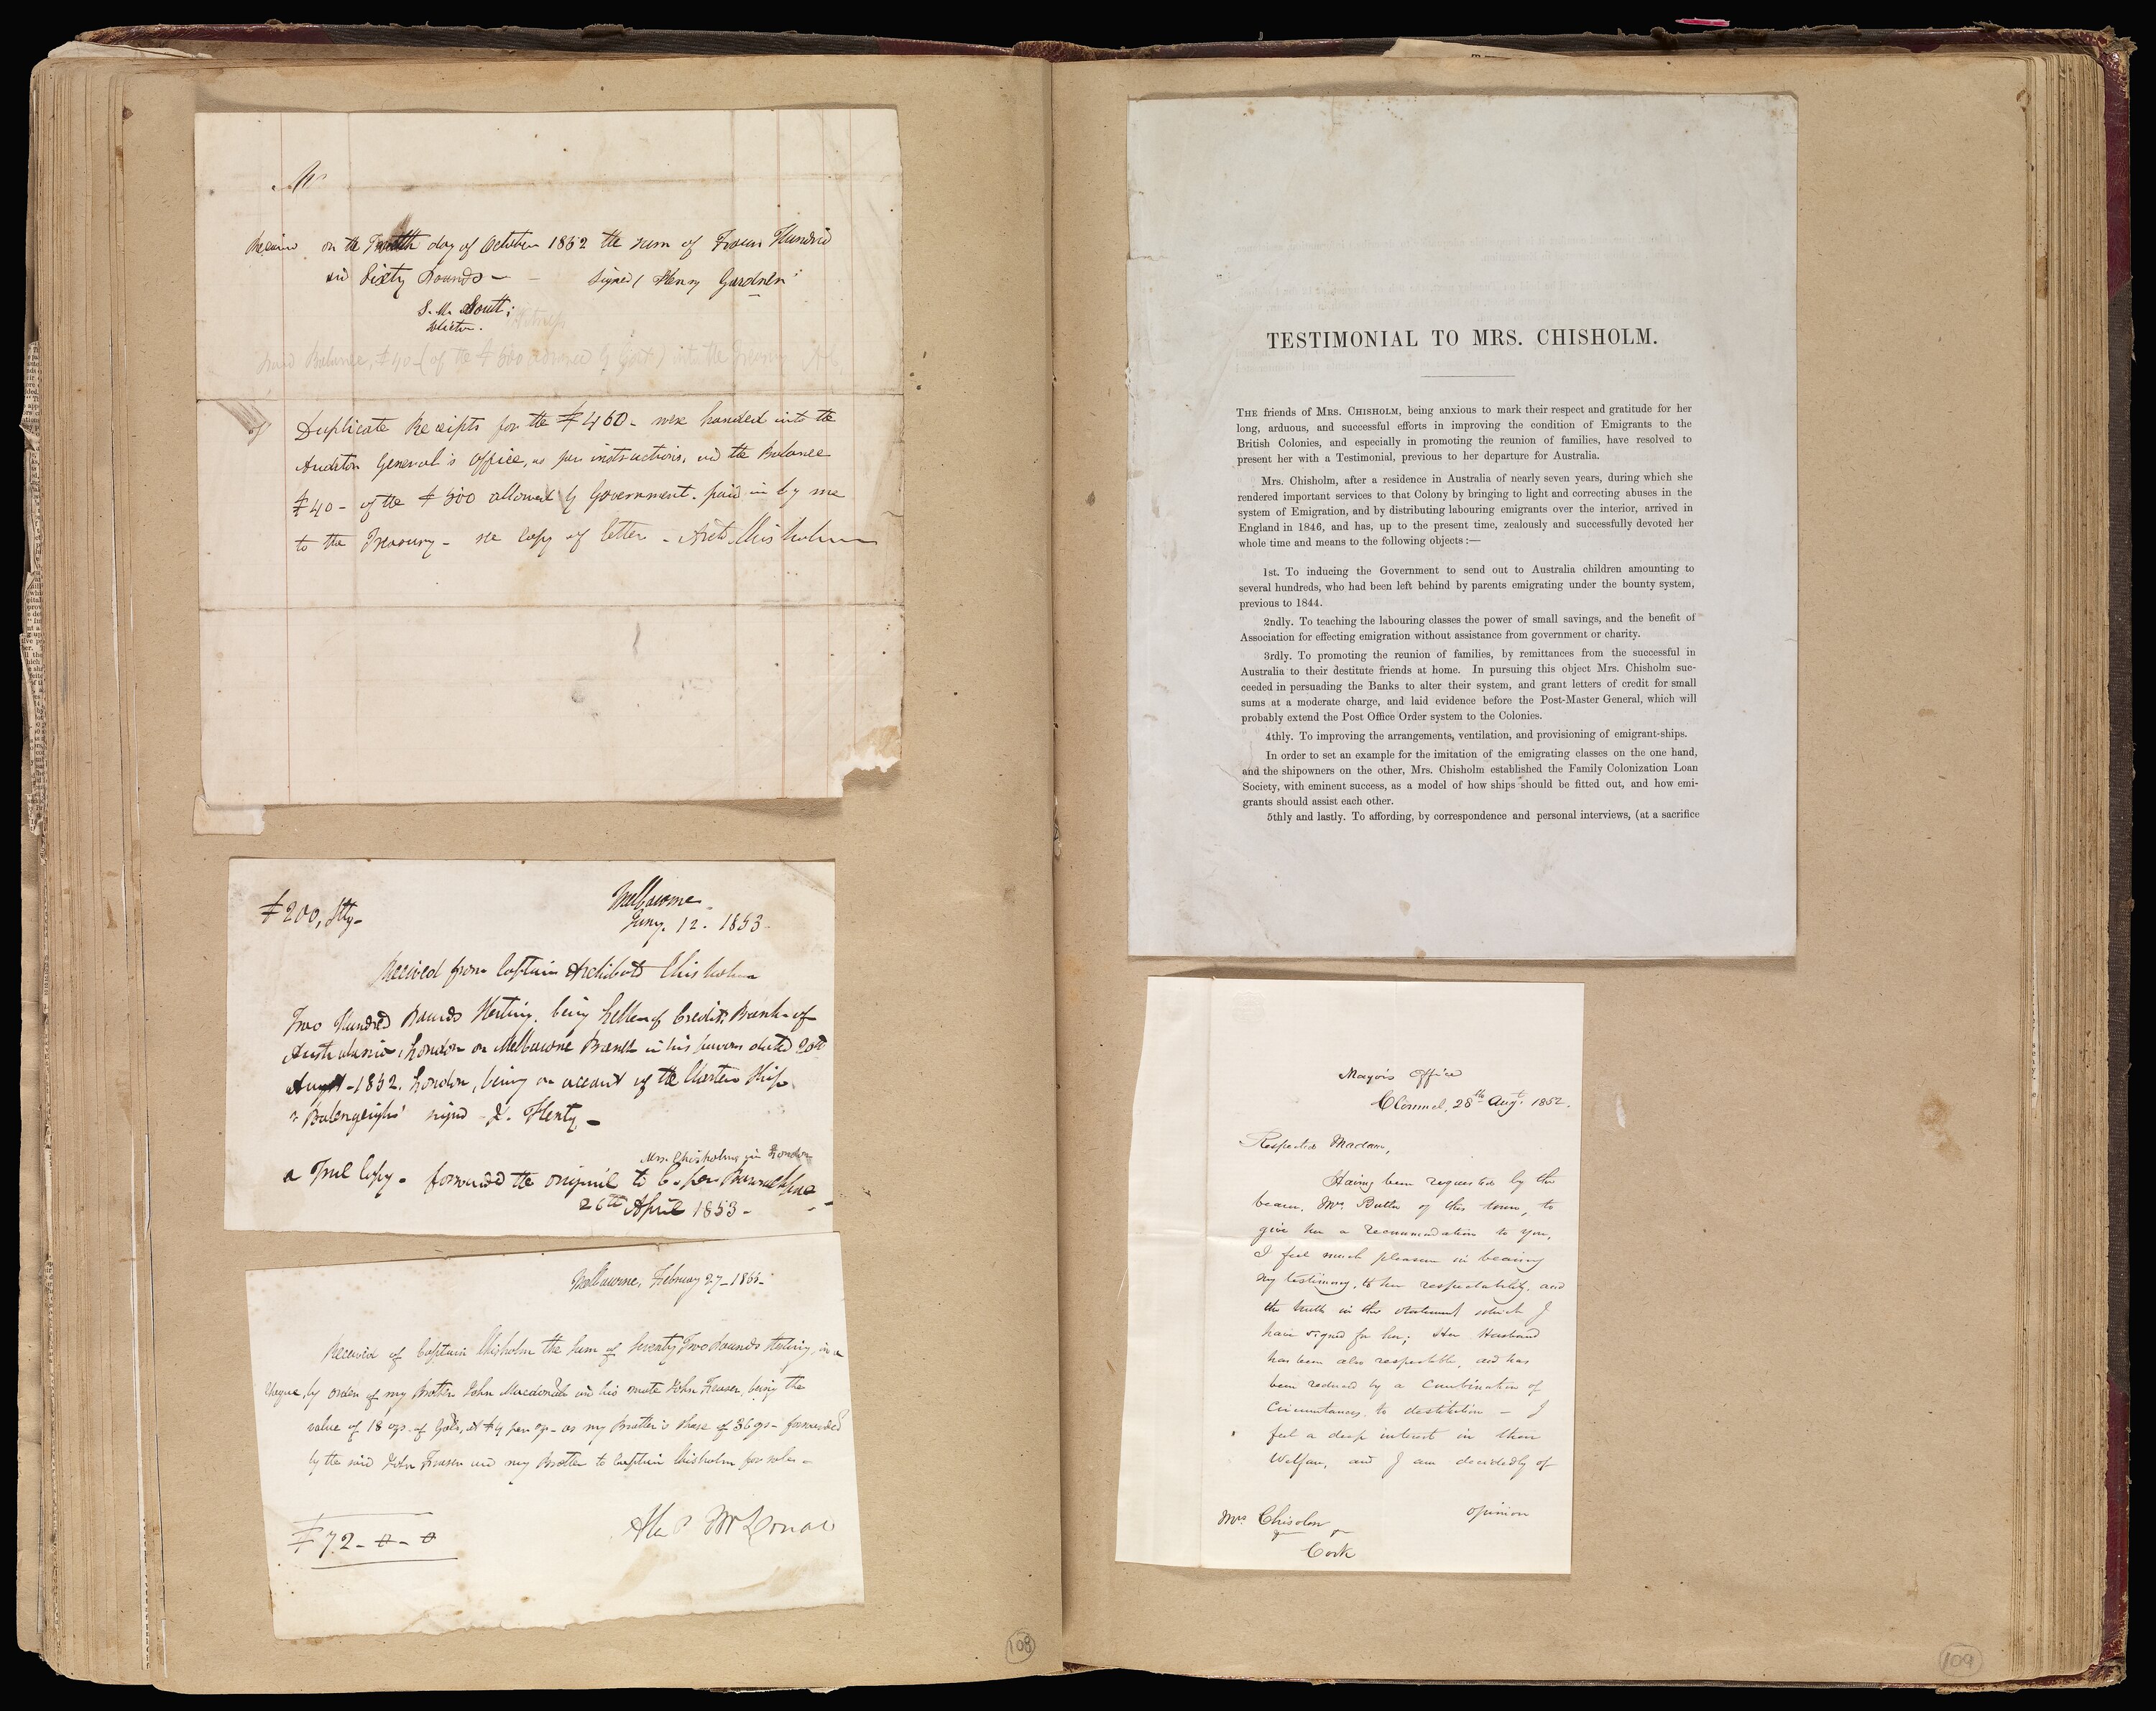 Received on the day of October 1852 the sum of Four Hundred
and Sixty Pounds - - signed / Henry Gardner
Duplicate Receipts for the £460 - were handed into the
Auditor General's Office, as per instructions, and the Balance
£40 - of the £500 allowed by Government. paid in by me
to the Treasury - see Copy of letter - Archd Chisholm
£200, Stg -
Melbourne
Jany. 12. 1853
Received from Captain Archibald Chisholm
Two Hundred Pounds Sterling, being Letter of Credit, Bank of
Australasia, London on Melbourne Branch in his favour dated 20th
Augst - 1852. London, being on account of the Charter Ship
signed Henty -
Mrs. Chisholm in London
a True Copy - forwarded the original to
26th April 1853 -
Melbourne, February 27 -
Received of Captain Chisholm the Sum of Seventy Two Pounds Sterling,
by order of my Brother John Macdonald and his mate John Fraser, being the
value of 18 ozs. of Gold, at £4 per oz - as my Brother's share of 36 ozs - forwarded
by the said John Fraser and my Brother to Captain Chisholm for sale -
£72 - 0 - 0
108
TESTIMONIAL TO MRS. CHISHOLM.
THE friends of MRS. CHISHOLM, being anxious to mark their respect and gratitude for her
long, arduous, and successful efforts in improving the condition of Emigrants to the
British Colonies, and especially in promoting the reunion of families, have resolved to
present her with a Testimonial, previous to her departure for Australia.
Mrs. Chisholm, after a residence in Australia of nearly seven years, during which she
rendered important services to that Colony by bringing to light and correcting abuses in the
system of Emigration, and by distributing labouring emigrants over the interior, arrived in
England in 1846, and has, up to the present time, zealously and successfully devoted her
whole time and means to the following objects :—
1st. To inducing the Government to send out to Australia children amounting to
several hundreds, who had been left behind by parents emigrating under the bounty system,
previous to 1844.
2ndly. To teaching the labouring classes the power of small savings, and the benefit of
Association for effecting emigration without assistance from government or charity.
3rdly. To promoting the reunion of families, by remittances from the successful in
Australia to their destitute friends at home. In pursuing this object Mrs. Chisholm suc-
ceeded in persuading the Banks to alter their system, and grant letters of credit for small
sums at a moderate charge, and laid evidence before the Post-Master General, which will
probably extend the Post Office Order system to the Colonies.
4thly. To improving the arrangements, ventilation, and provisioning of emigrant-ships.
In order to set an example for the imitation of the emigrating classes on the one hand,
and the shipowners on the other, Mrs. Chisholm established the Family Colonization Loan
Society, with eminent success, as a model of how ships should be fitted out, and how emi-
grants should assist each other.
5thly and lastly. To affording, by correspondence and personal interviews, (at a sacrifice
Mayor's Office
Clonmel, 28th Augt. 1852.
Respected Madam,
Having been requested by the
bearer, Mrs. Butler of this town, to
give her a recommendation to you,
I feel much pleasure in bearing
my testimony, to her respectability, and
the truth in the statement which I
have signed for her; Her Husband
has been also respectable, and has
been reduced by a combination of
Circumstances to destitution - I
feel a deep interest in their
Welfare, and I am decidedly of
opinion
Mrs. Chisolm
Cork
109